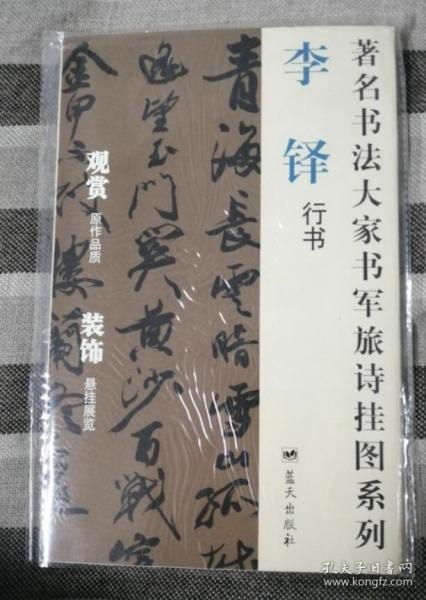 著名书法大家书军旅诗挂图系列
李铎
行书
蓝天出版社
青海長雲暗雪山孤城
遥望玉門關黄沙百戰穿
金甲不破樓蘭終
观赏
原作品质
装饰
悬挂展览
孔夫子旧书网
www.kongfz.com